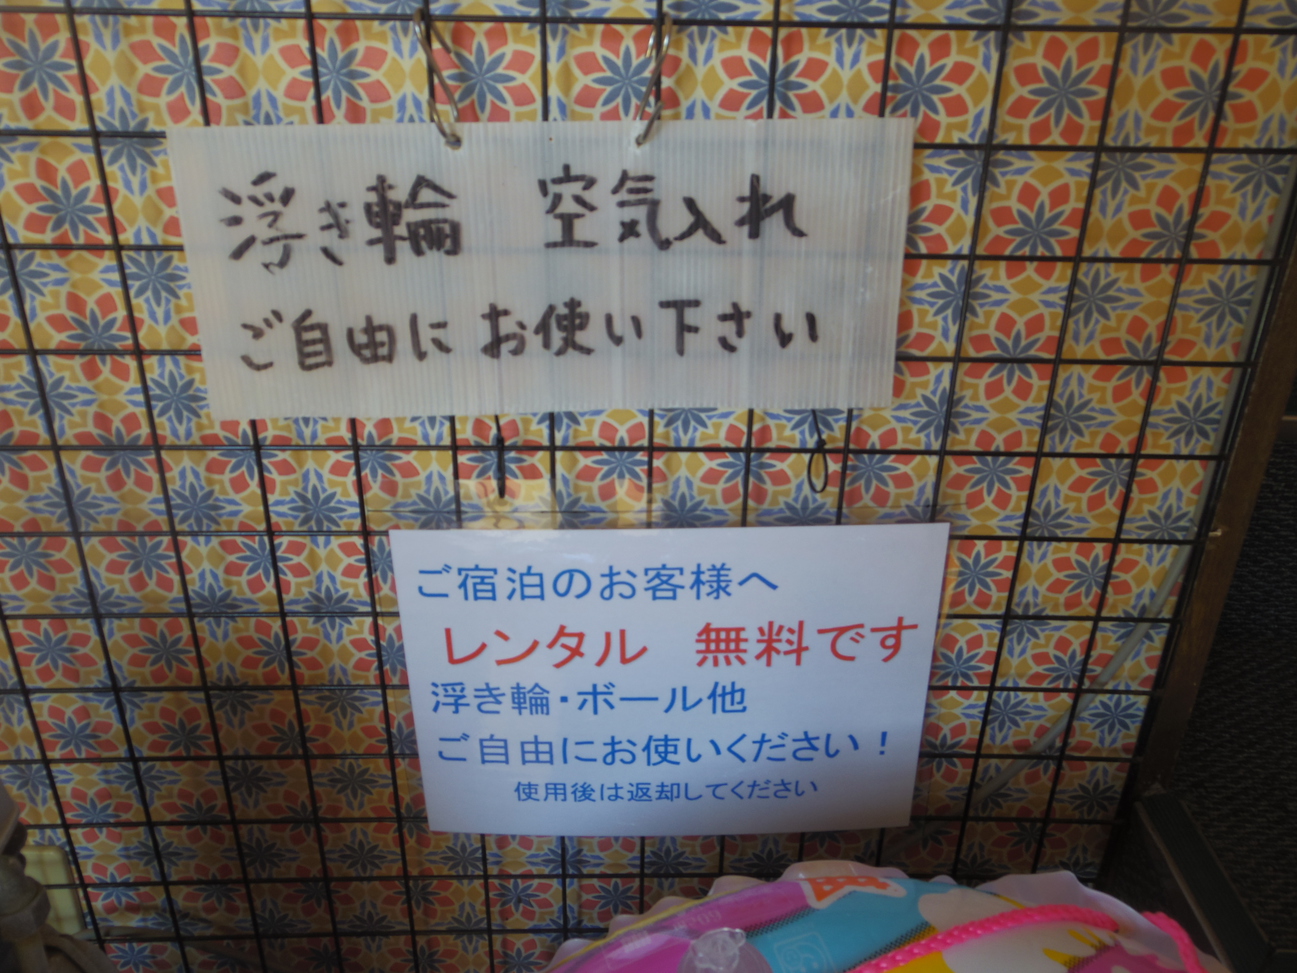 浮き輪 空気入れ
ご自由にお使い下さい
ご宿泊のお客様へ
レンタル 無料です
浮き輪・ボール他
ご自由にお使いください！
使用後は返却してください